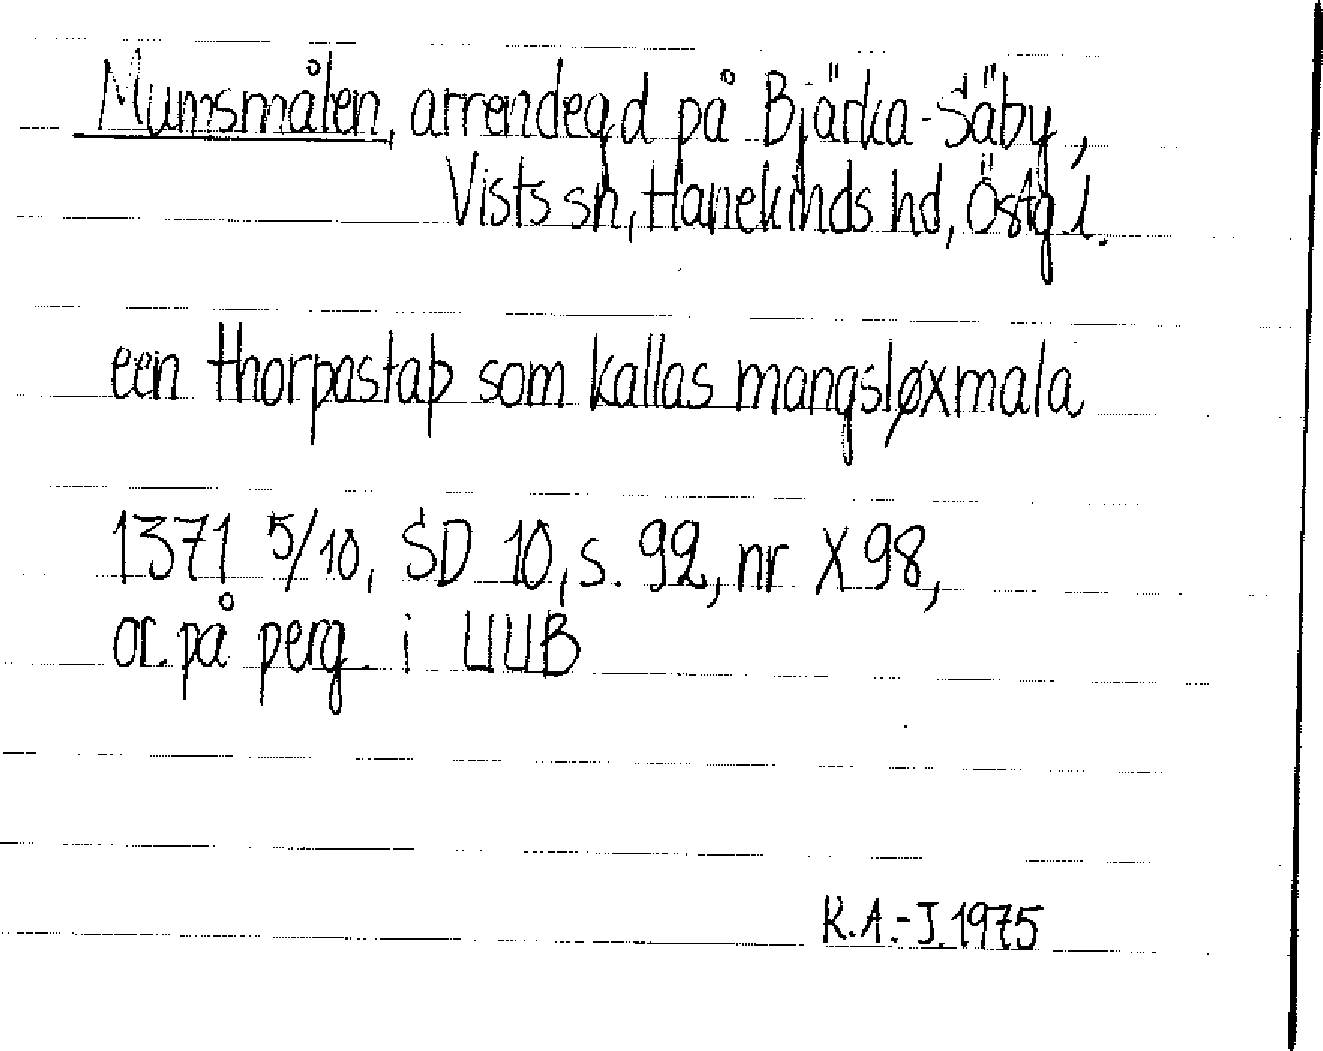 Mumsmålen, arrendegd på Bjärka-Säby,
Vists sn, Hanekinds hd, Östg l.
een thorpastaþ som kallas mangsløxmala
1371 5/10, SD 10, s. 92, nr X 98,
or. på perg i UUB
K.A.-J. 1975